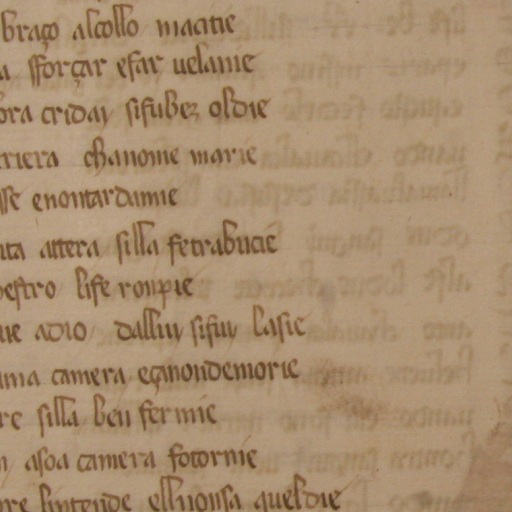 braço alcollo macitie
a sforçar efar uelanie
ora criday sifubez oldie
rriera chanome marie
sse enontardamie
ita attera silla fetrabucie
estro life ronpie
ue adio dalluy sifuy lasie
ama camera eçanondemorie
re silla ben fermie
n asoa camera fotornie
ore lintende elluonsa queldie